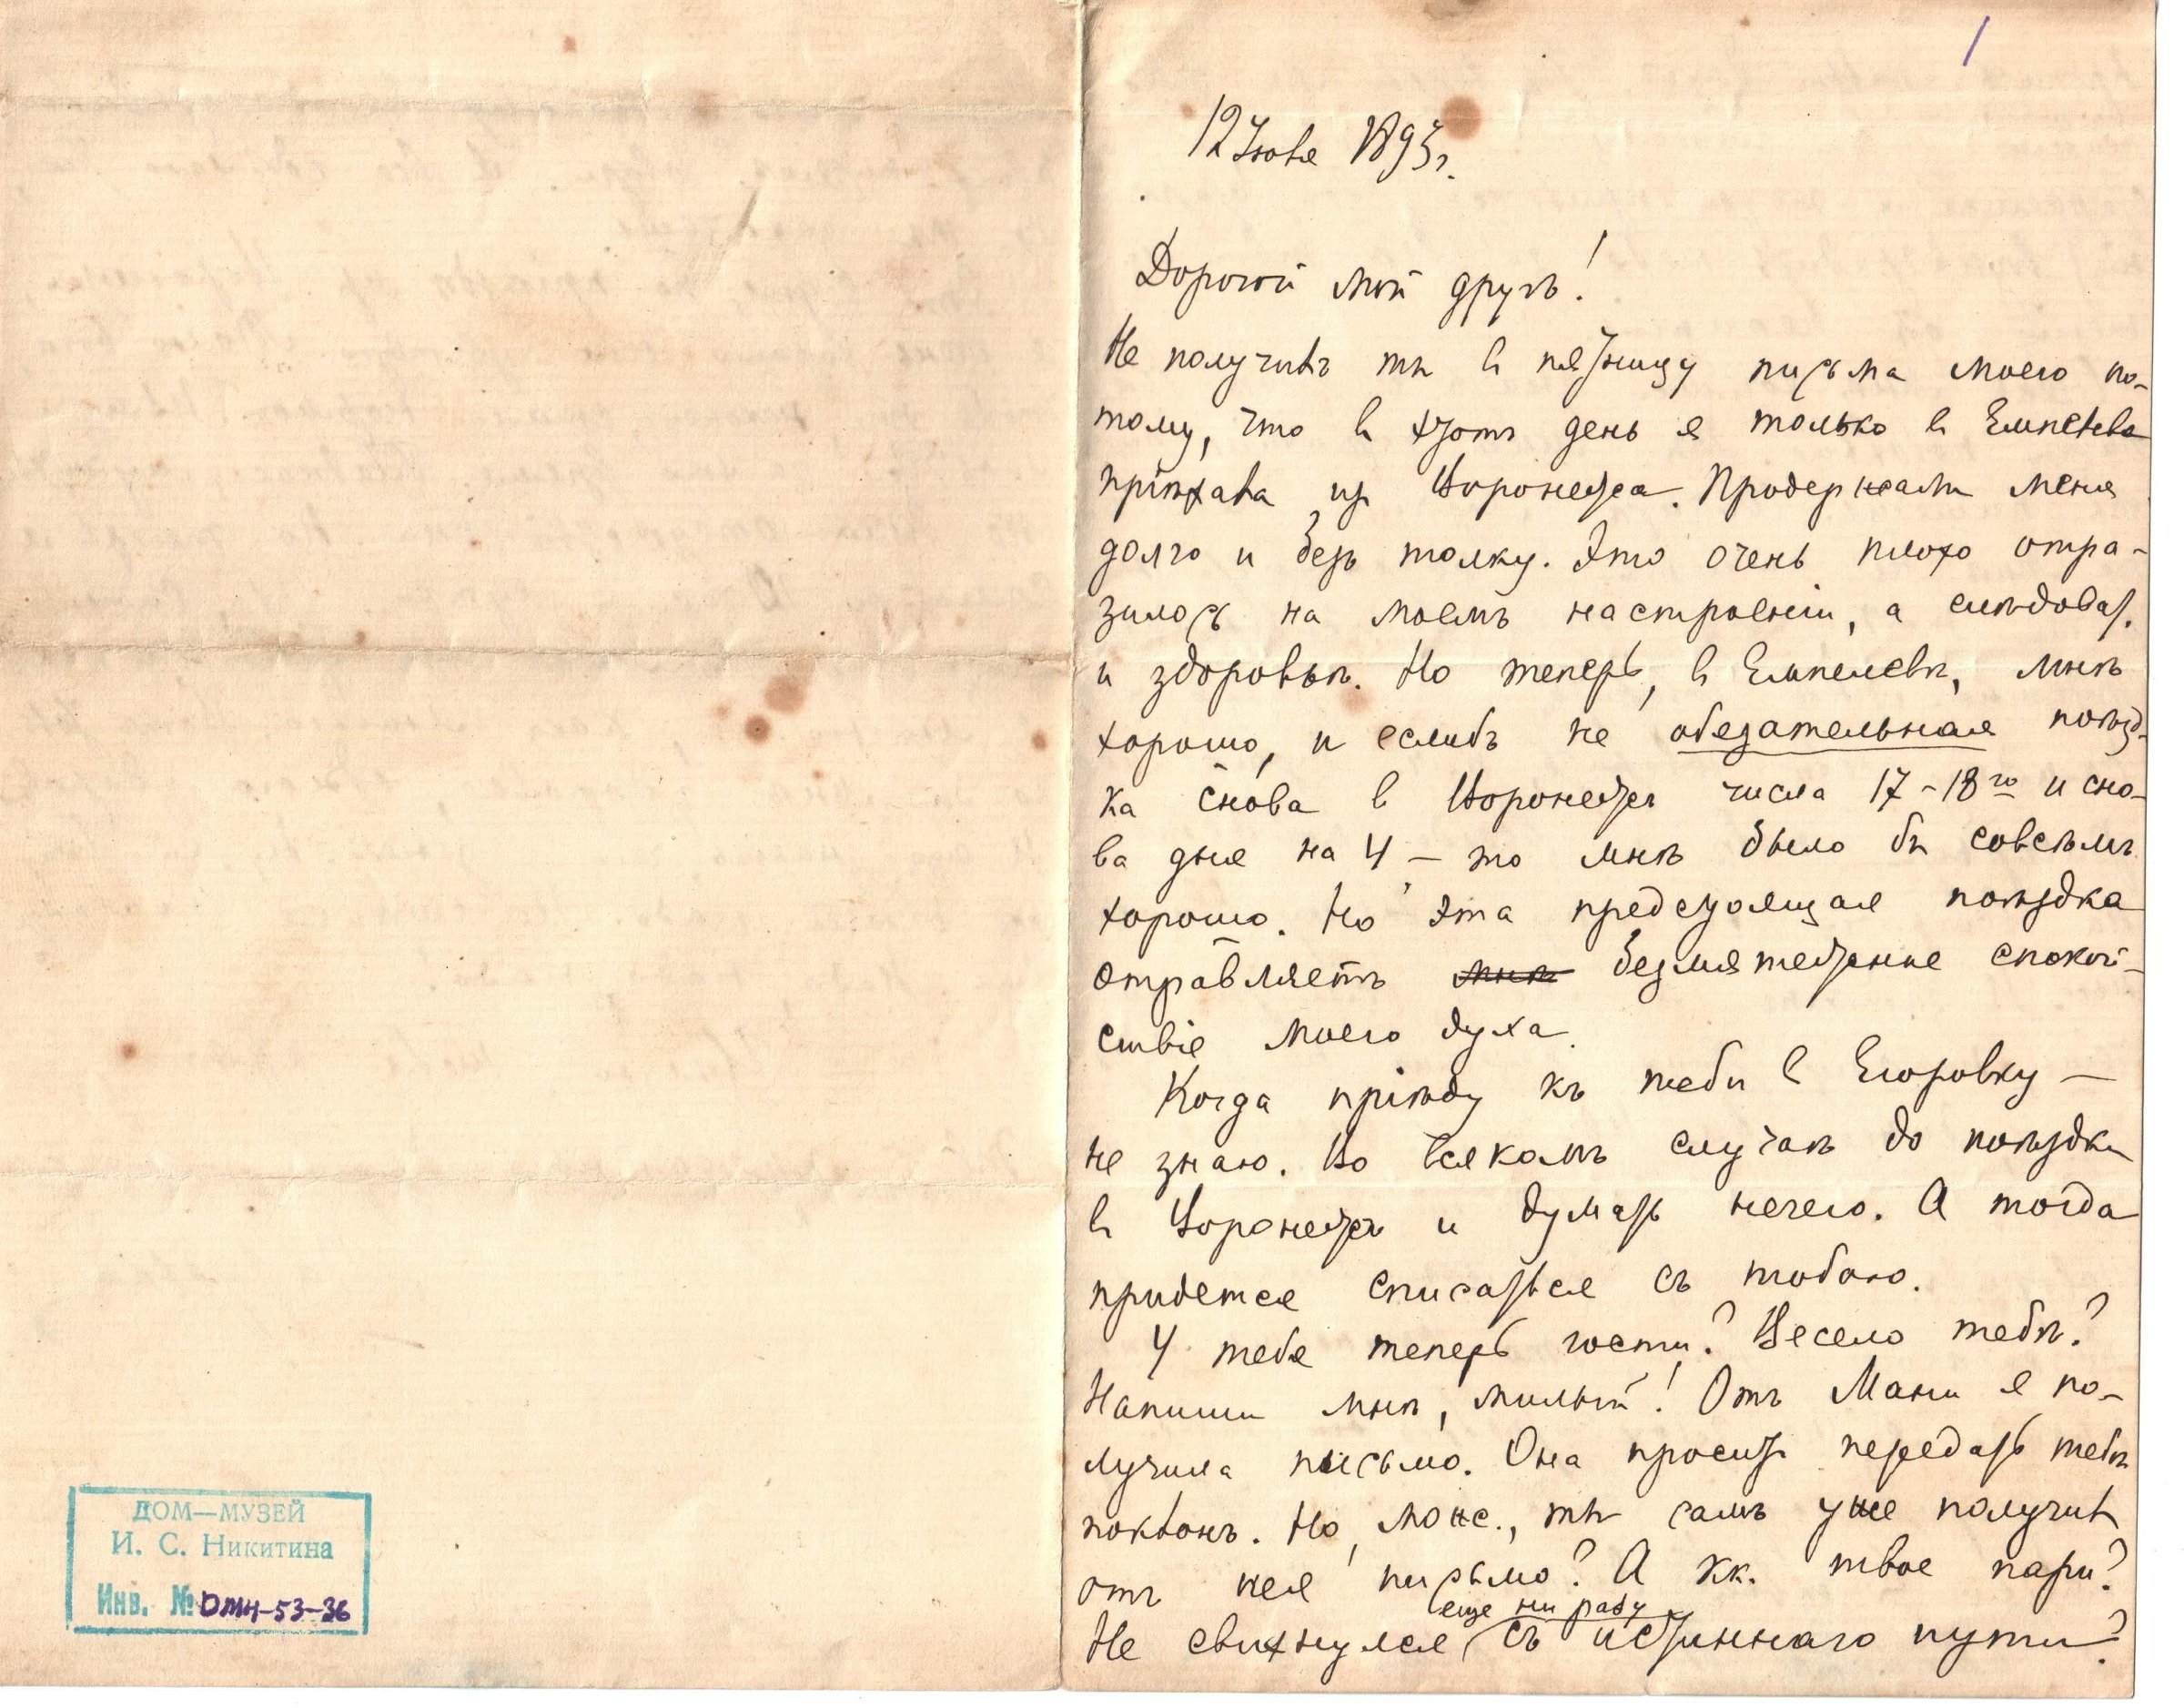 1
12 Июня 1893 г.
Дорогой мой другъ!
Не получилъ ты в пятницу письма моего по-
тому, что в этотъ день я только в Емпелево
пріѣхала из Воронежа. Продержали меня
долго и безъ толку. Это очень плохо отра-
зилось на моемъ настроеніи, а слѣдоват.
и здоровьѣ. Но теперь, в Емпелевѣ, мнѣ
хорошо, и еслибъ не обязательная поѣзд-
ка снова в Воронежъ числа 17-18го и сно-
ва дня на 4 — то мнѣ было бы совсѣмъ
хорошо. Но эта предстоящая поѣздка
отравляетъ мнѣ безмятежное спокой-
ствіе моего духа.
Когда пріѣду къ тебѣ в Егоровку —
не знаю. Во всякомъ случаѣ до поѣздки
в Воронежъ и думать нечего. А тогда
придется списаться съ тобою.
У тебя теперь гости? Весело тебѣ?
Напиши мнѣ, милый! Отъ Мани я по-
лучила письмо. Она просит передать тебѣ
поклонъ. Но, може., ты самъ уже получил
отъ нея письмо? А кк. твое пари?
еще ни разу
Не свихнулся съ истиннаго пути?
ДОМ—МУЗЕЙ
И. С. Никитина
Инв. № ОМН-53-36